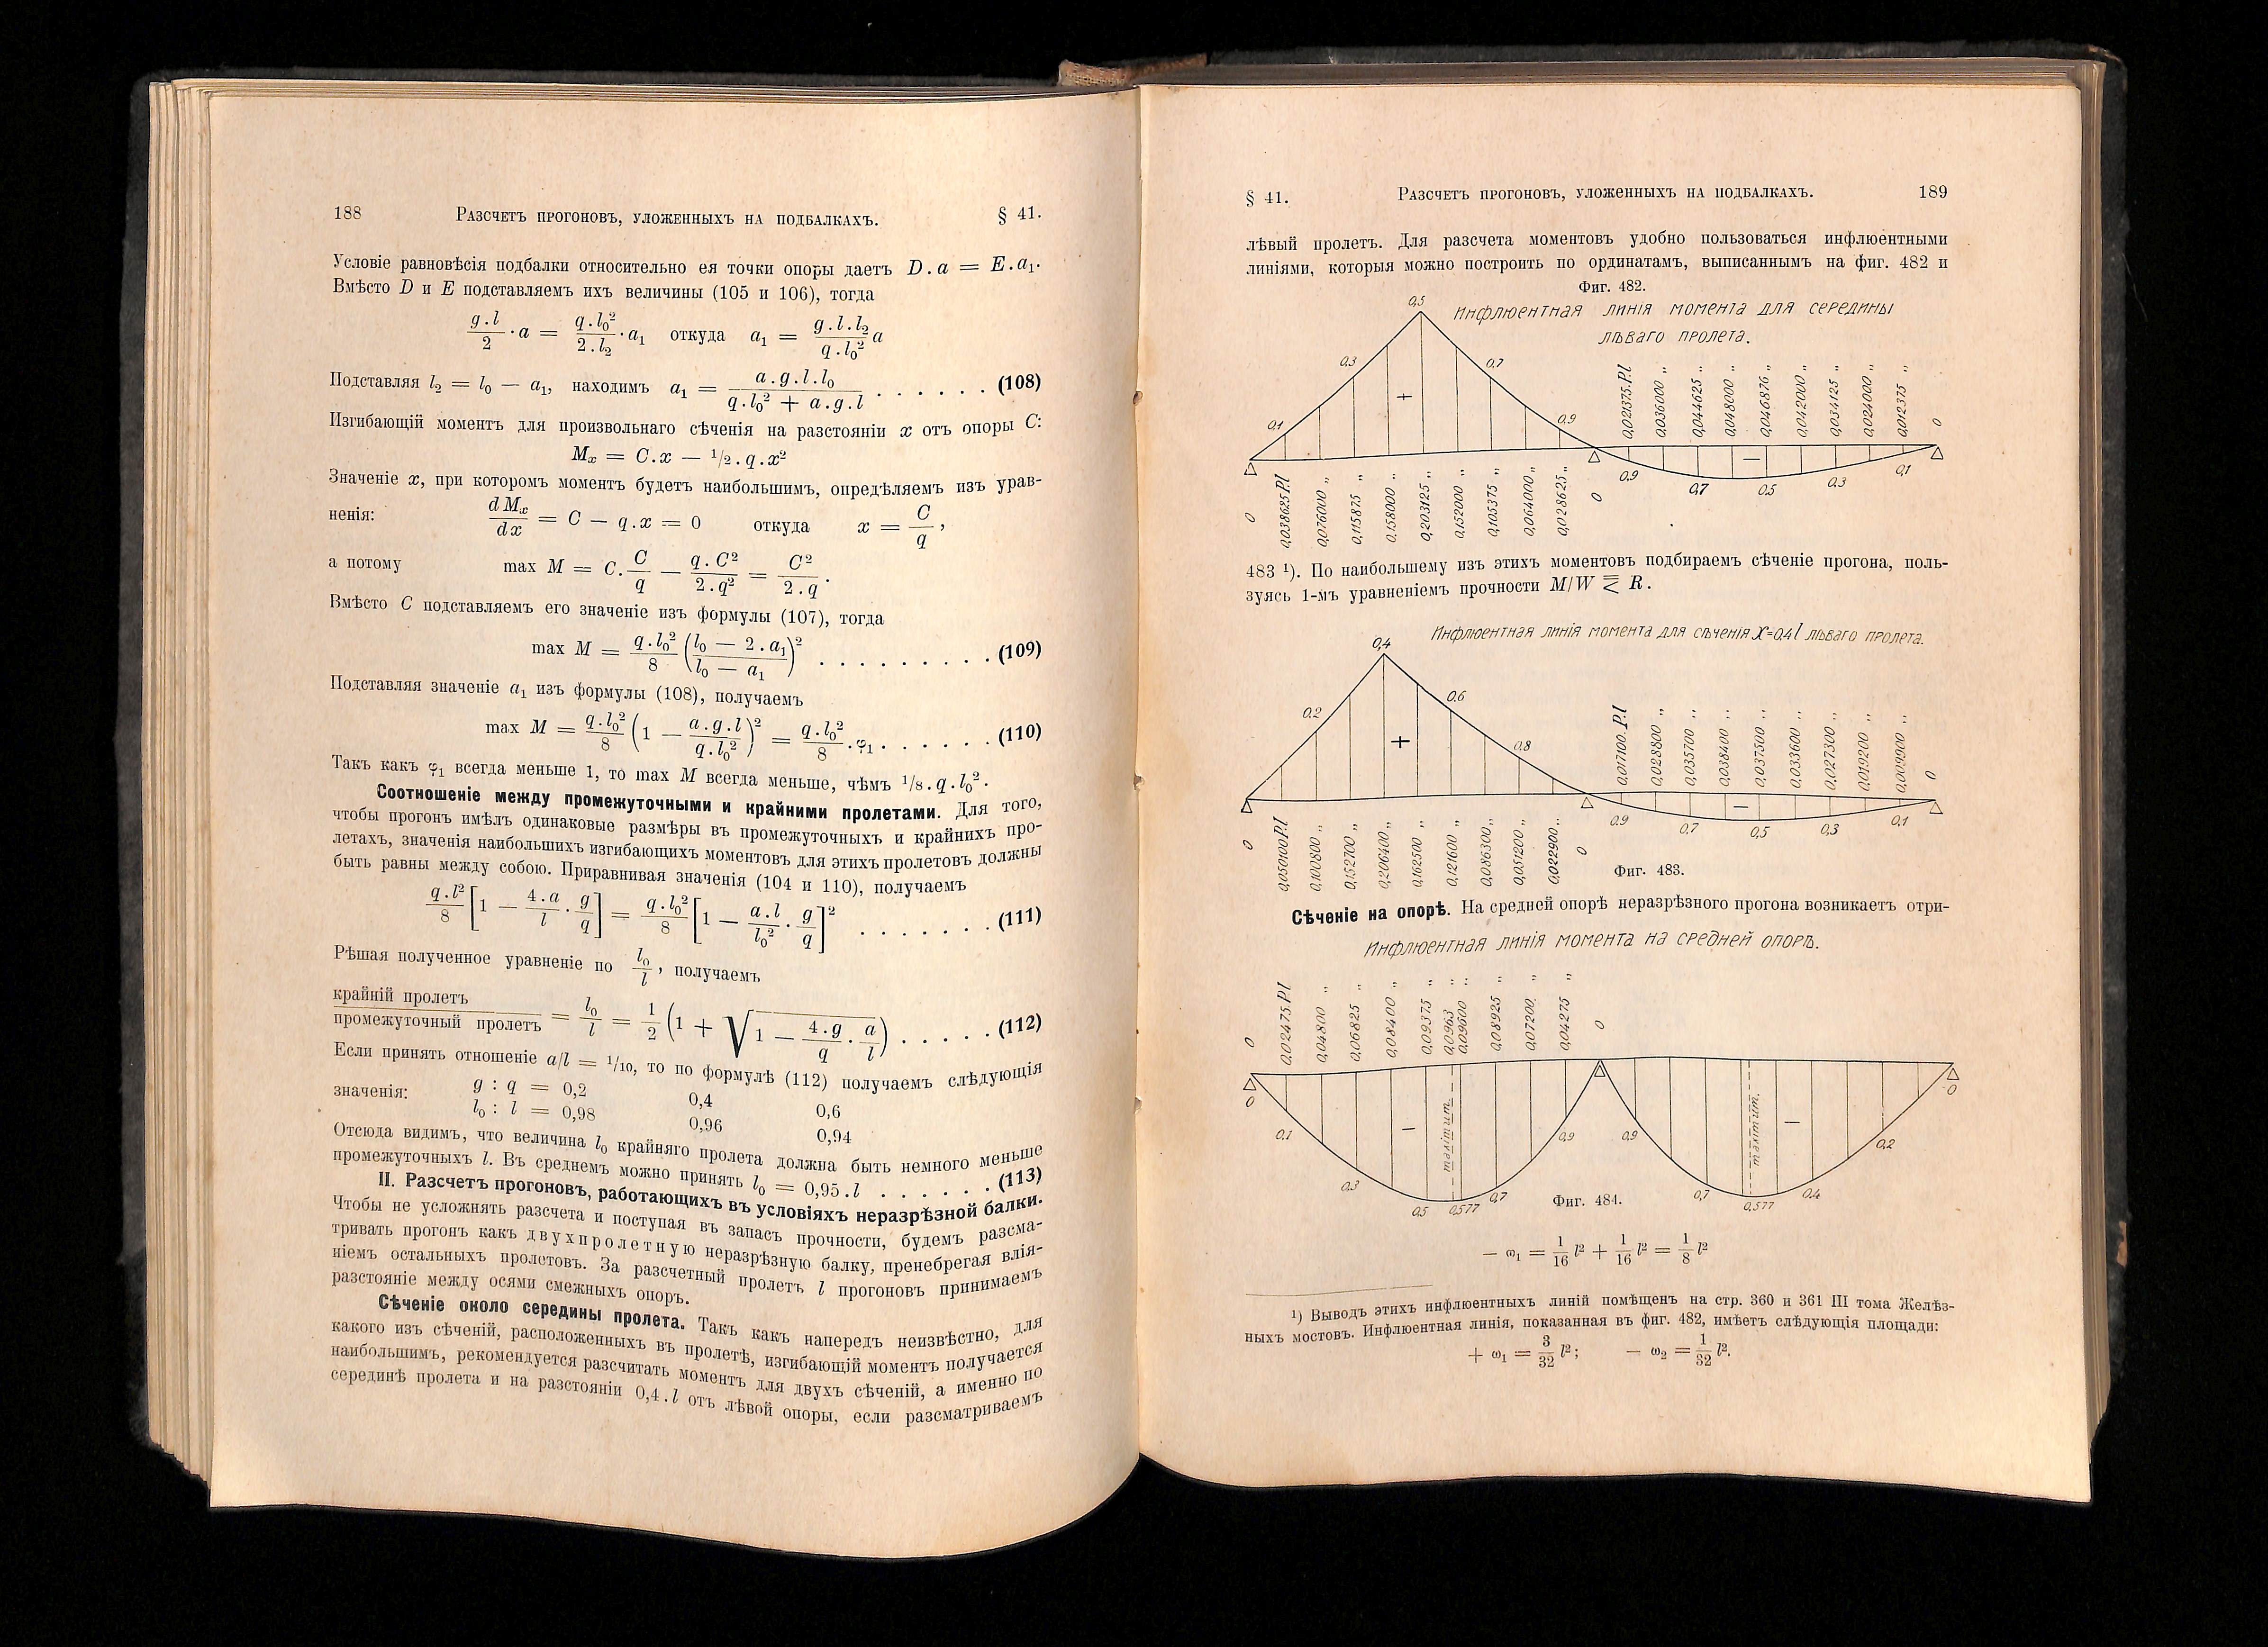 188 Разсчетъ прогоновъ, уложенныхъ на подбалкахъ. § 41.
Условіе равновѣсія подбалки относительно ея точки опоры даетъ D . a = E . a₁.
Вмѣсто D и E подставляемъ ихъ величины (105 и 106), тогда
g . l / 2 · a = q . l₀² / 2 . l₂ · a₁ откуда a₁ = g . l . l₂ / q . l₀² a
Подставляя l₂ = l₀ — a₁, находимъ a₁ = a . g . l . l₀ / q . l₀² + a . g . l . . . . . . (108)
Изгибающій моментъ для произвольнаго сѣченія на разстояніи x отъ опоры C:
Mₓ = C . x — ¹/₂ . q . x²
Значеніе x, при которомъ моментъ будетъ наибольшимъ, опредѣляемъ изъ урав-
ненія: d Mₓ / dx = C — q . x = 0 откуда x = C / q ,
а потому max M = C . C / q — q . C² / 2 . q² = C² / 2 . q .
Вмѣсто C подставляемъ его значеніе изъ формулы (107), тогда
max M = q . l₀² / 8 (l₀ — 2 . a₁ / l₀ — a₁)² . . . . . . . . . (109)
Подставляя значеніе a₁ изъ формулы (108), получаемъ
max M = q . l₀² / 8 (1 — a . g . l / q . l₀²)² = q . l₀² / 8 · φ₁ . . . . . . (110)
Такъ какъ φ₁ всегда меньше 1, то max M всегда меньше, чѣмъ ¹/₈ . q . l₀² .
Соотношеніе между промежуточными и крайними пролетами. Для того,
чтобы прогонъ имѣлъ одинаковые размѣры въ промежуточныхъ и крайнихъ про-
летахъ, значенія наибольшихъ изгибающихъ моментовъ для этихъ пролетовъ должны
быть равны между собою. Приравнивая значенія (104 и 110), получаемъ
q . l² / 8 [1 — 4 . a / l · g / q] = q . l₀² / 8 [1 — a . l / l₀² · g / q]² . . . . . . . (111)
Рѣшая полученное уравненіе по l₀ / l , получаемъ
крайній пролетъ / промежуточный пролетъ = l₀ / l = 1 / 2 (1 + √1 — 4 . g / q · a / l) . . . . . (112)
Если принять отношеніе a/l = ¹/₁₀, то по формулѣ (112) получаемъ слѣдующія
значенія: g : q = 0,2 0,4 0,6
l₀ : l = 0,98 0,96 0,94
Отсюда видимъ, что величина l₀ крайняго пролета должна быть немного меньше
промежуточныхъ l. Въ среднемъ можно принять l₀ = 0,95 . l . . . . . . (113)
II. Разсчетъ прогоновъ, работающихъ въ условіяхъ неразрѣзной балки.
Чтобы не усложнять разсчета и поступая въ запасъ прочности, будемъ разсма-
тривать прогонъ какъ двухпролетную неразрѣзную балку, пренебрегая влія-
ніемъ остальныхъ пролетовъ. За разсчетный пролетъ l прогоновъ принимаемъ
разстояніе между осями смежныхъ опоръ.
Сѣченіе около середины пролета. Такъ какъ напередъ неизвѣстно, для
какого изъ сѣченій, расположенныхъ въ пролетѣ, изгибающій моментъ получается
наибольшимъ, рекомендуется разсчитать моментъ для двухъ сѣченій, а именно по
серединѣ пролета и на разстояніи 0,4 . l отъ лѣвой опоры, если разсматриваемъ
§ 41. Разсчетъ прогоновъ, уложенныхъ на подбалкахъ. 189
лѣвый пролетъ. Для разсчета моментовъ удобно пользоваться инфлюентными
линіями, которыя можно построить по ординатамъ, выписаннымъ на фиг. 482 и
Фиг. 482.
Инфлюентная линія момента для середины
лѣваго пролета.
0,5
0,3 0,7
0,1 + 0,9
0,021375.P.l 0,036000 „ 0,044625 „ 0,048000 „ 0,046876 „ 0,042000 „ 0,034125 „ 0,024000 „ 0,012375 „ 0
—
0,9 0,7 0,5 0,3 0,1
0 0,038625 P.l 0,076000 „ 0,115875 „ 0,158000 „ 0,203125 „ 0,152000 „ 0,105375 „ 0,064000 „ 0,028625 „ 0
483 ¹). По наибольшему изъ этихъ моментовъ подбираемъ сѣченіе прогона, поль-
зуясь 1-мъ уравненіемъ прочности M/W ⋜ R .
Инфлюентная линія момента для сѣченія X=0,4 l лѣваго пролета.
0,4
0.2 0.6
+ 0,8
0,017100.P.l 0,028800 „ 0,035700 „ 0,038400 „ 0,037500 „ 0,033600 „ 0,027300 „ 0,019200 „ 0,009900 „ 0
—
0.9 0.7 0,5 0,3 0,1
0 0,050100 P.l 0,100800 „ 0,152700 „ 0,206400 „ 0,162500 „ 0,121600 „ 0,086300 „ 0,051200 „ 0,022900 „ 0
Фиг. 483.
Сѣченіе на опорѣ. На средней опорѣ неразрѣзного прогона возникаетъ отри-
Инфлюентная линія момента на средней опорѣ.
0 0,02475 P.l 0,04800 „ 0,06825 „ 0,08400 „ 0,09375 „ 0,0963 „ 0,09600 „ 0,08925 „ 0,07200 „ 0,04275 „ 0
0 0
— maximum. maximum. —
0,1 0,9 0,9 0,2
0,3 0,5 0,577 0,7 Фиг. 484. 0,7 0,577 0,4
— ω₁ = 1/16 l² + 1/16 l² = 1/8 l²
¹) Выводъ этихъ инфлюентныхъ линій помѣщенъ на стр. 360 и 361 III тома Желѣз-
ныхъ мостовъ. Инфлюентная линія, показанная въ фиг. 482, имѣетъ слѣдующія площади:
+ ω₁ = 3/32 l²; — ω₂ = 1/32 l².